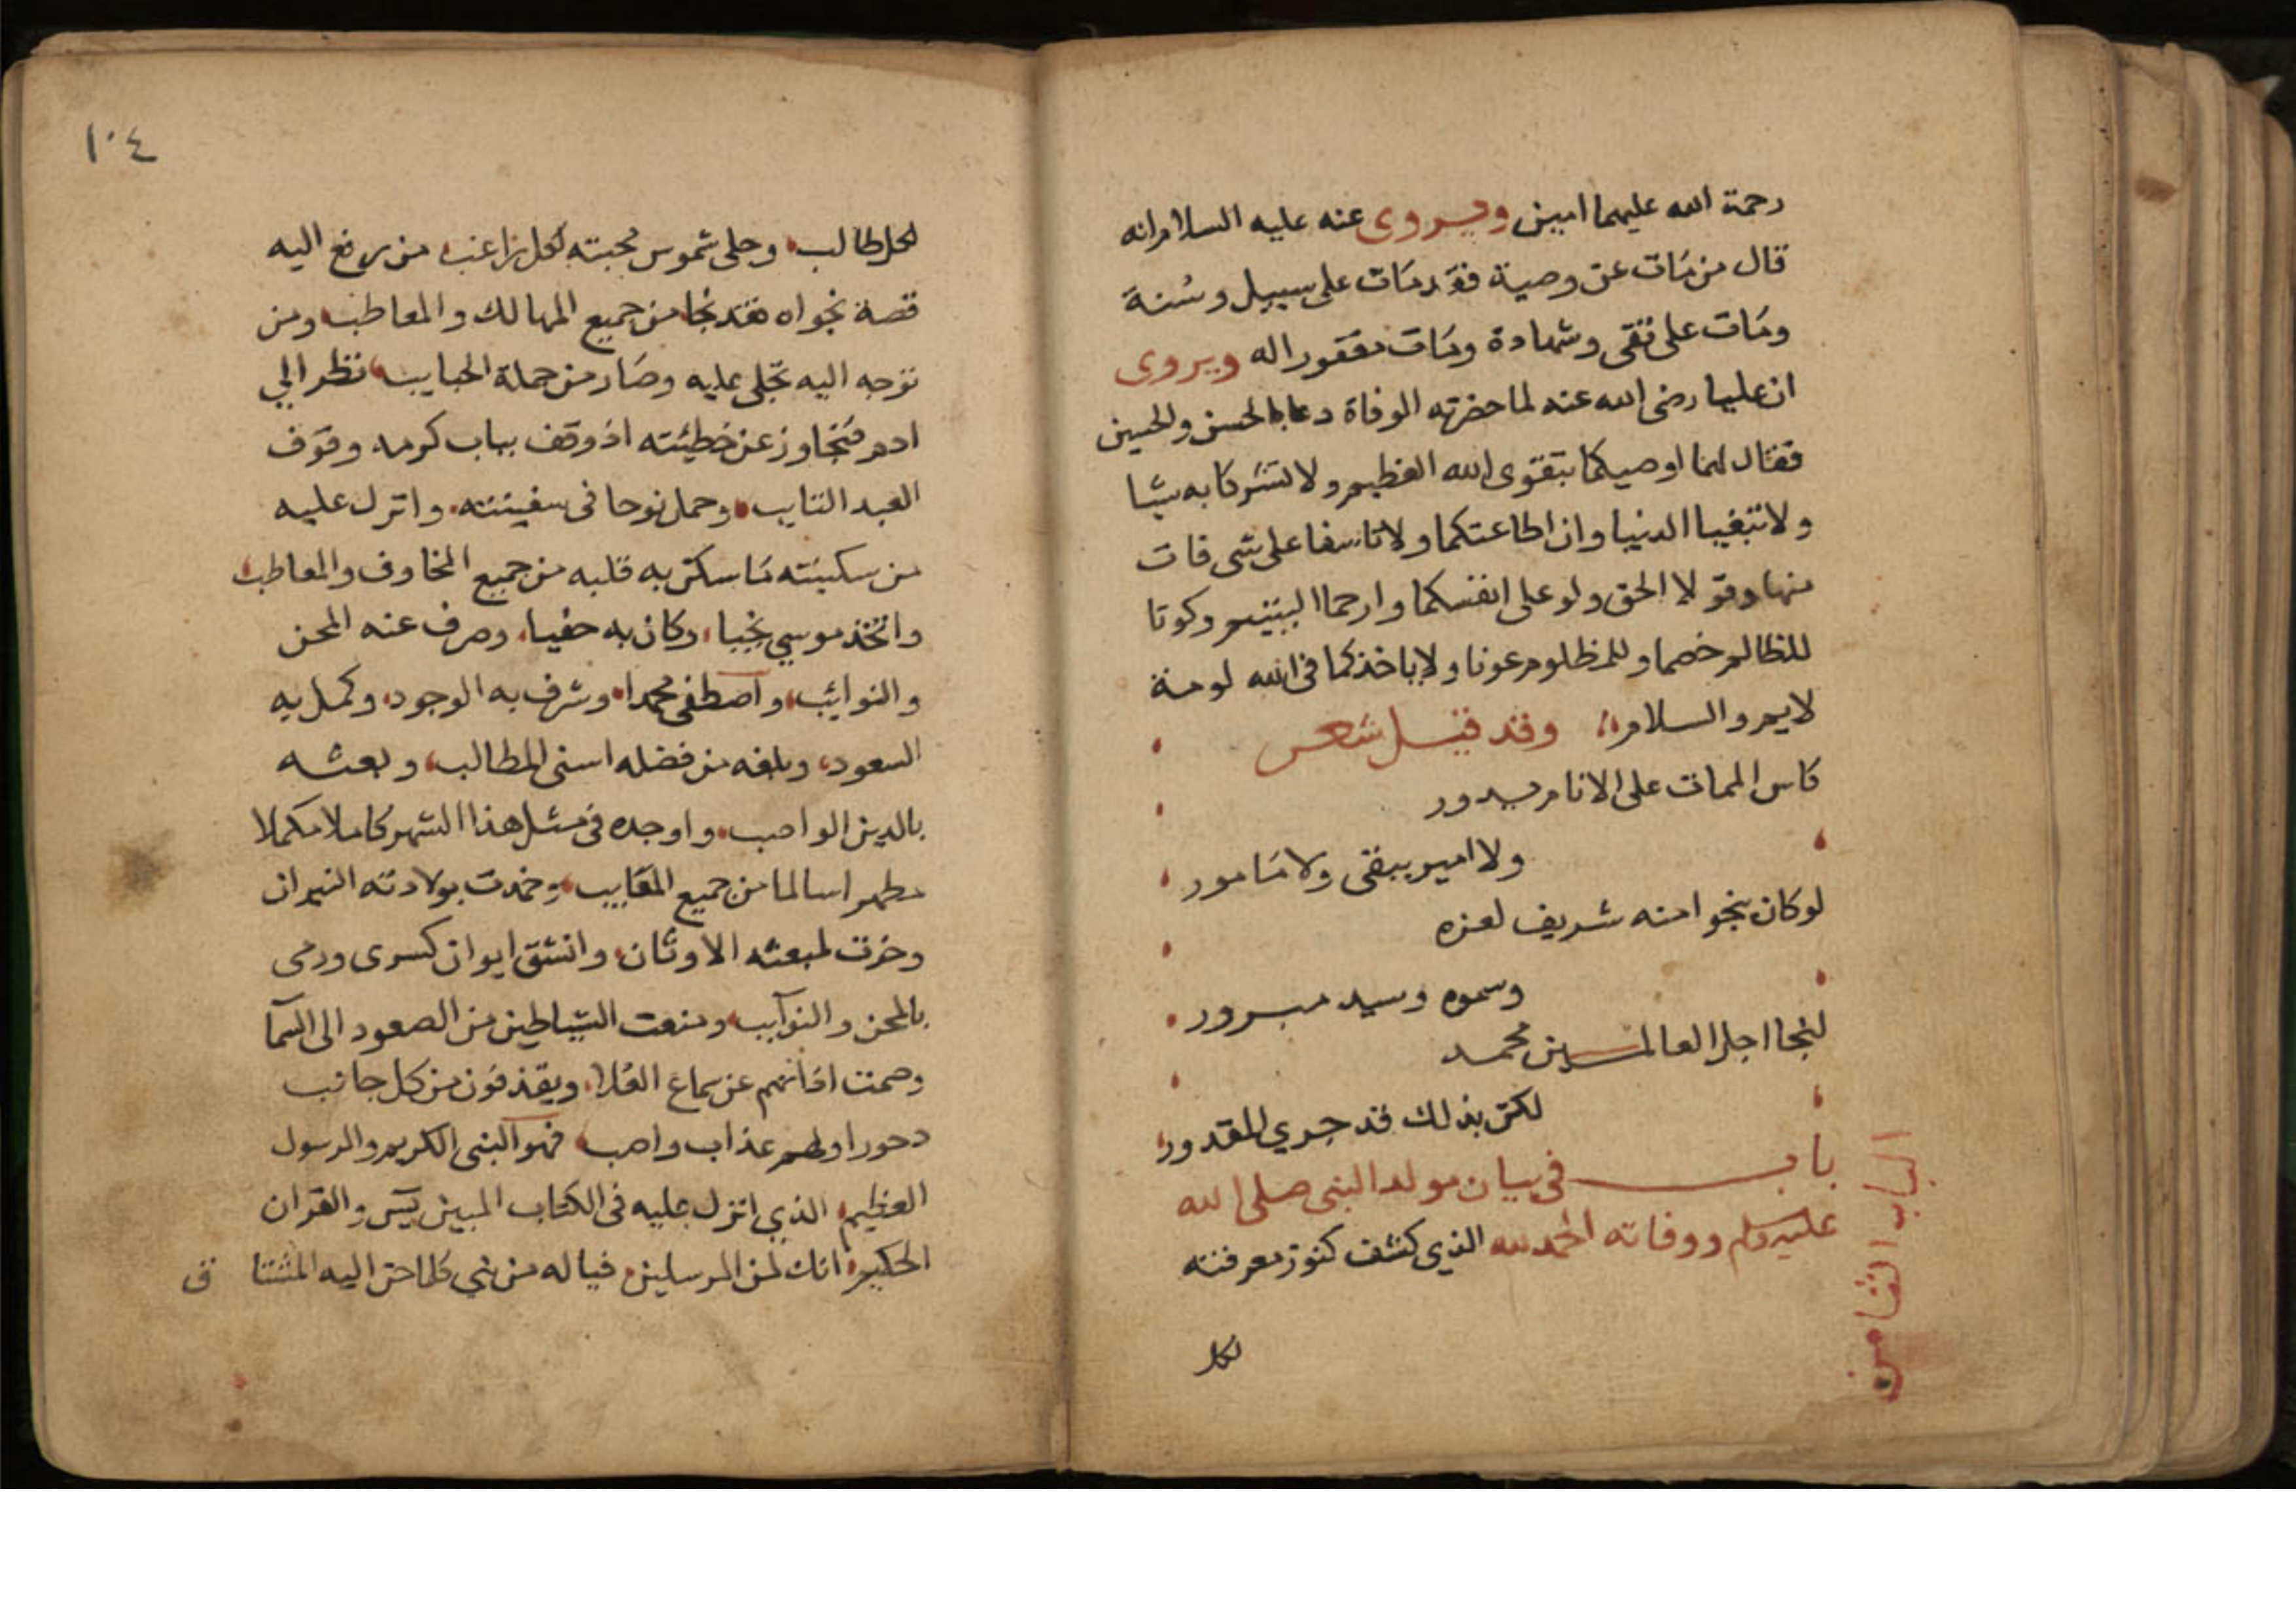 رحمة الله عليهما امين ويروى عنه عليه السلام انه
قال من مات عن وصية فقد مات على سبيل وسنة
ومات على تقى وشهادة ومات مغفورا له ويروى
ان عليا رضى الله عنه لما حضرته الوفاة دعا بالحسن والحسين
فقال لهما اوصيكما بتقوى الله العظيم ولا تشركا به شيا
ولا تبغيا الدنيا وان اطاعتكما ولا تاسفا على شى فات
منها وقولا الحق ولو على انفسكما وارحما اليتيم وكونا
للظالم خصما وللمظلوم عونا ولا ياخذكما فى الله لومة
لايم والسلام وقد قيل شعر
كاس الممات على الانام يدور
ولا امير يبقى ولا مامور
لو كان ينجوا منه شريف لعزه
وسموه وسيد مبرور
لنجا اجل العالمين محمد
لكن بذلك قد جري المقدور
باب فى بيان مولد النبى صلى الله
عليه وسلم ووفاته الحمد لله الذي كشف كنوز معرفته
لكل
الباب الثامن
١٠٤
لكل طالب وجلى شموس محبته لكل راغب من رفع اليه
قصة نجواه فقد نجا من جميع المهالك والمعاطب ومن
توجه اليه تجلى عليه وصار من جملة الحبايب نظر الي
ادم فتجاوز عن خطيئته اذ وقف بباب كرمه وقوف
العبد التايب وحمل نوحا فى سفينته وانزل عليه
من سكينته ما سكن به قلبه من جميع المخاوف والمعاطب
واتخذ موسي نجيا وكان به حفيا وصرف عنه المحن
والنوائب واصطفى محمدا وشرف به الوجود وكمل به
السعود وبلغه من فضله اسنى المطالب وبعثه
بالدين الواصب واوجده فى مثل هذا الشهر كاملا مكملا
مطهرا سالما من جميع المعايب وخمدت بولادته النيران
وخرت لمبعثه الاوثان وانشق ايوان كسرى ورمى
بالمحن والنوآيب ومنعت الشياطين من الصعود الى السمآ
وصمت اذانهم عن سماع العلا ويقذفون من كل جانب
دحورا ولهم عذاب واصب فهو النبى الكريم والرسول
العظيم الذي انزل عليه فى الكتاب المبين يس والقران
الحكيم انك لمن المرسلين فيا له من نبي كلما حن اليه المشتاق